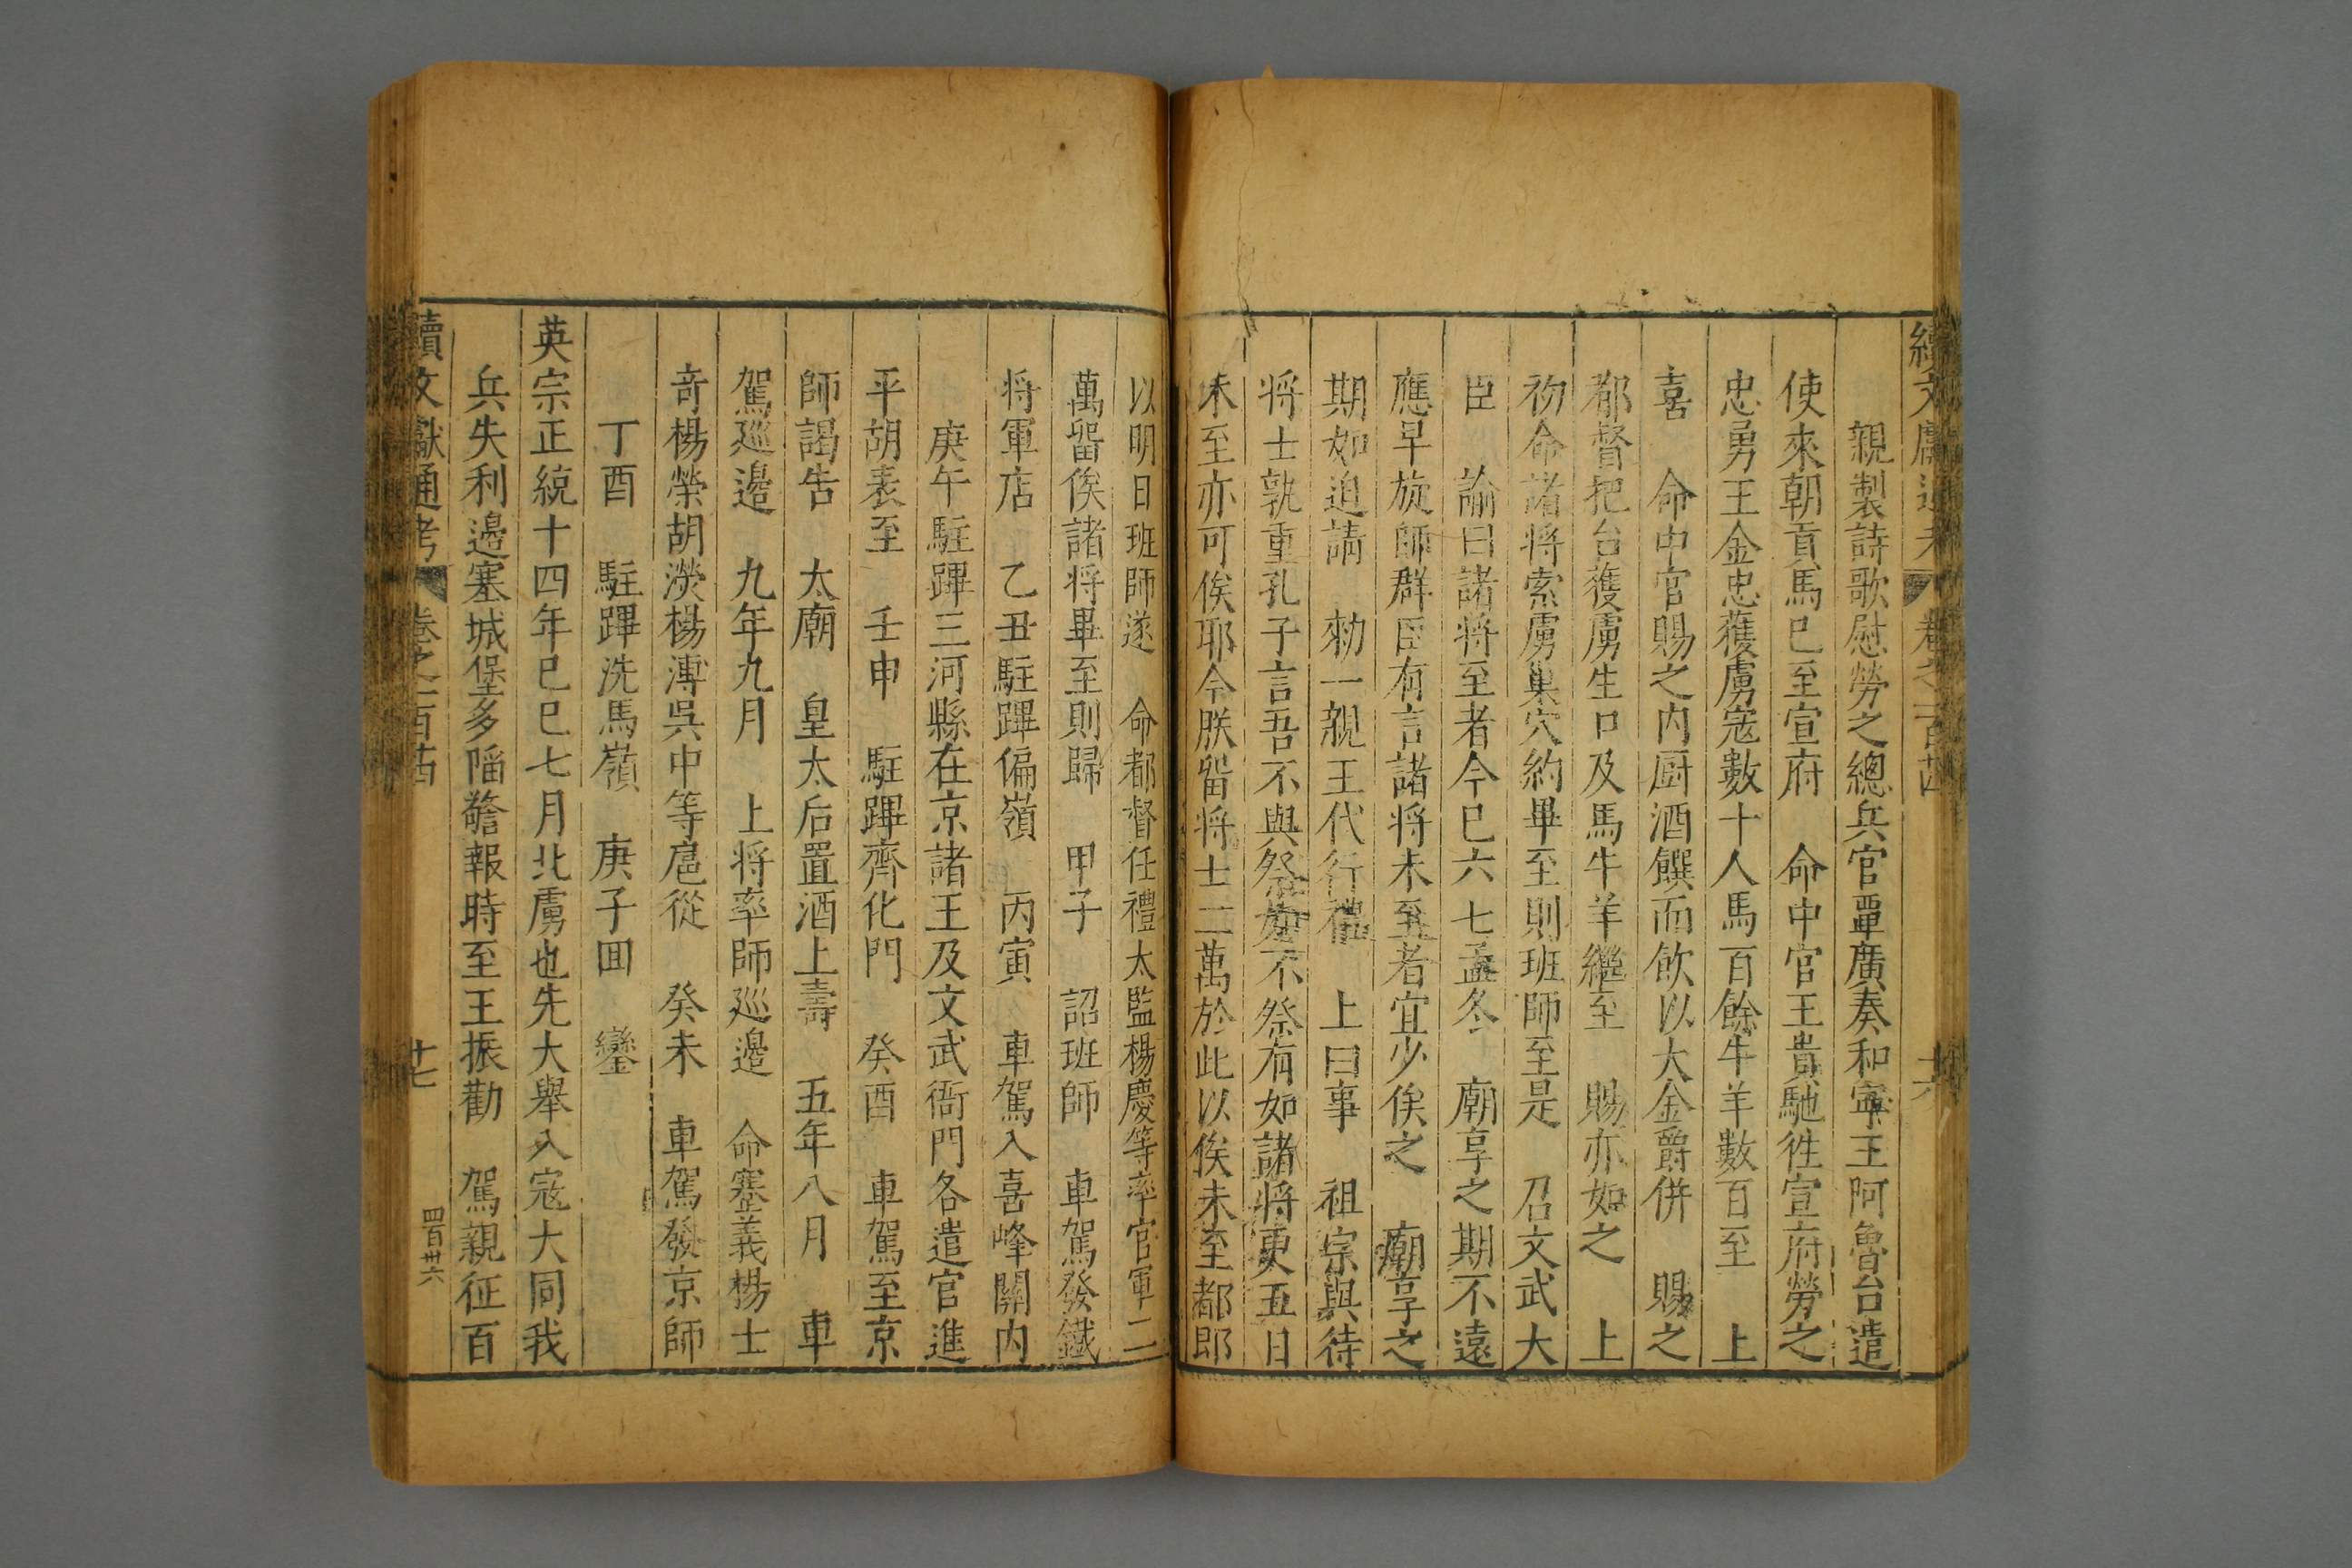 續文獻通考 卷之一百 十六
親製詩歌慰勞之總兵官覃廣奏和寧王阿魯台遣
使來朝貢馬已至宣府 命中官王貴馳徃宣府勞之
忠勇王金忠獲虜寇數十人馬百餘牛羊數百至 上
喜 命中官賜之内厨酒饌而飲以大金爵併 賜之
都督把台獲虜生口及馬牛羊繼至 賜亦如之 上
初命諸将索虜巢穴約畢至則班師至是 召文武大
臣 諭曰諸将至者今已六七孟冬 廟享之期不遠
應早旋師群臣有言諸将未至者宜少俟之 廟享之
期如迫請 勑一親王代行禮 上曰事 祖宗與待
将士孰重孔子言吾不與祭如不祭有如諸将更五日
未至亦可俟耶今朕留将士二萬於此以俟未至都即
以明日班師遂 命都督任禮太監楊慶等率官軍二
萬留俟諸将畢至則歸 甲子 詔班師 車駕發鐵
将軍店 乙丑駐蹕偏嶺 丙寅 車駕入喜峰關内
庚午駐蹕三河縣在京諸王及文武衙門各遣官進
平胡表至 壬申 駐蹕齊化門 癸酉 車駕至京
師謁告 太廟 皇太后置酒上壽 五年八月 車
駕廵邊 九年九月 上将率師廵邊 命蹇義楊士
奇楊榮胡濙楊溥吳中等扈從 癸未 車駕發京師
丁酉 駐蹕洗馬嶺 庚子囬 鑾
英宗正統十四年已巳七月北虜也先大舉入寇大同我
兵失利邊塞城堡多陷警報時至王振勸 駕親征百
續文獻通考 卷之一百 十七
四百卅六